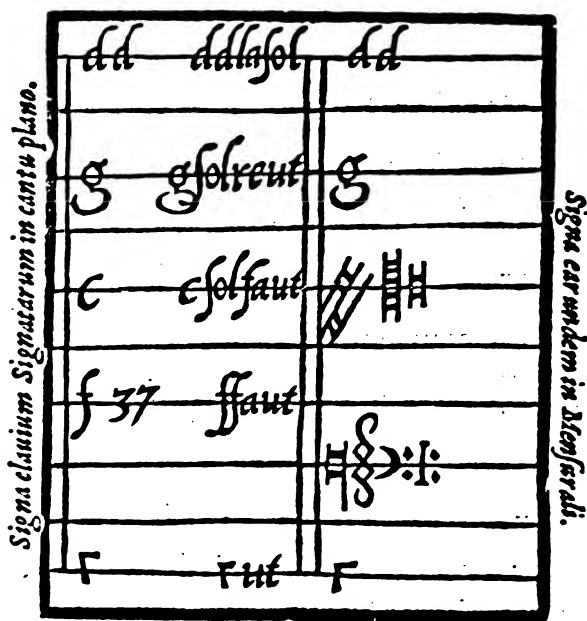 Signa clauium Signatarum in cantu plano.
dd ddlasol dd
g gsolreut g
c csolfaut
f 37 ffaut
Γ Γ ut Γ
Signa earundem in Mensurali.